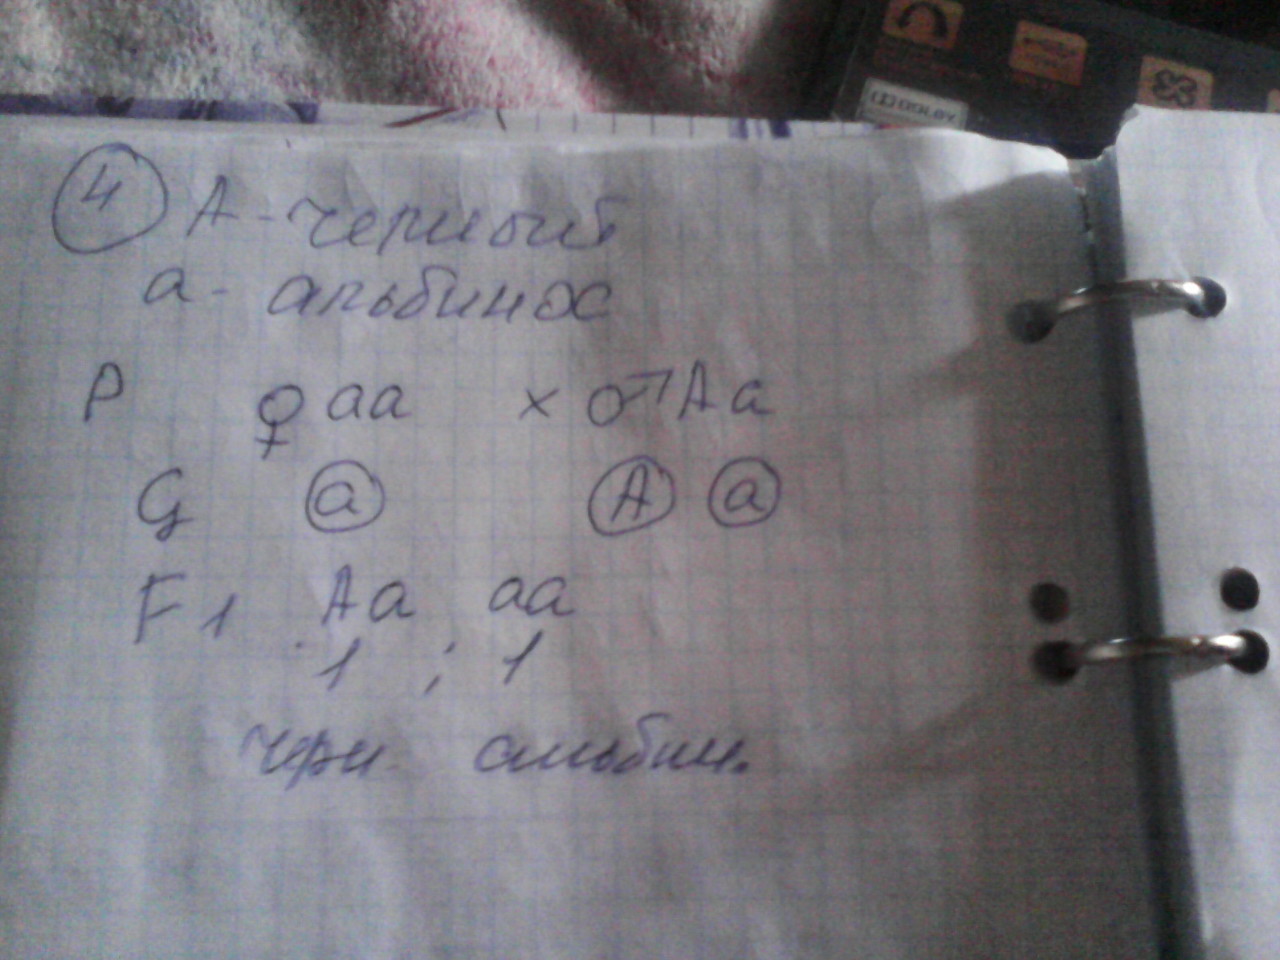 DOLBY
4 А - черный
а - альбинос
P ♀ aa × ♂ Aa
G a A a
F1 Aa ; aa
1 ; 1
черн. альбин.